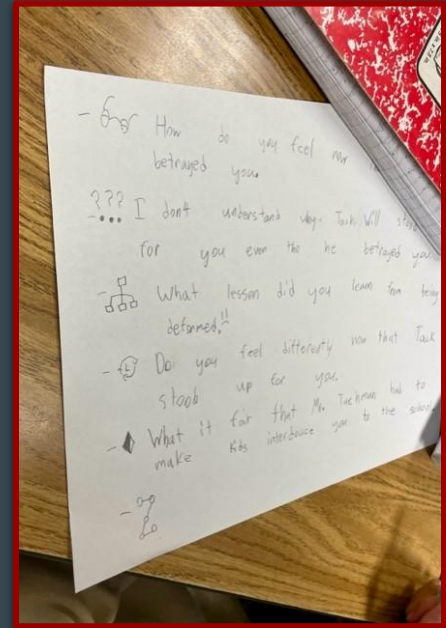 How do you feel now
betrayed you.
??? I don't understand why Jack Will
for you even tho he betrayed you
What lesson did you learn from being
deformed.!!
Do you feel differently now that Jack
stoob up for you.
What it fair that Mr. Tuchman had to
make kids interduce you to the school